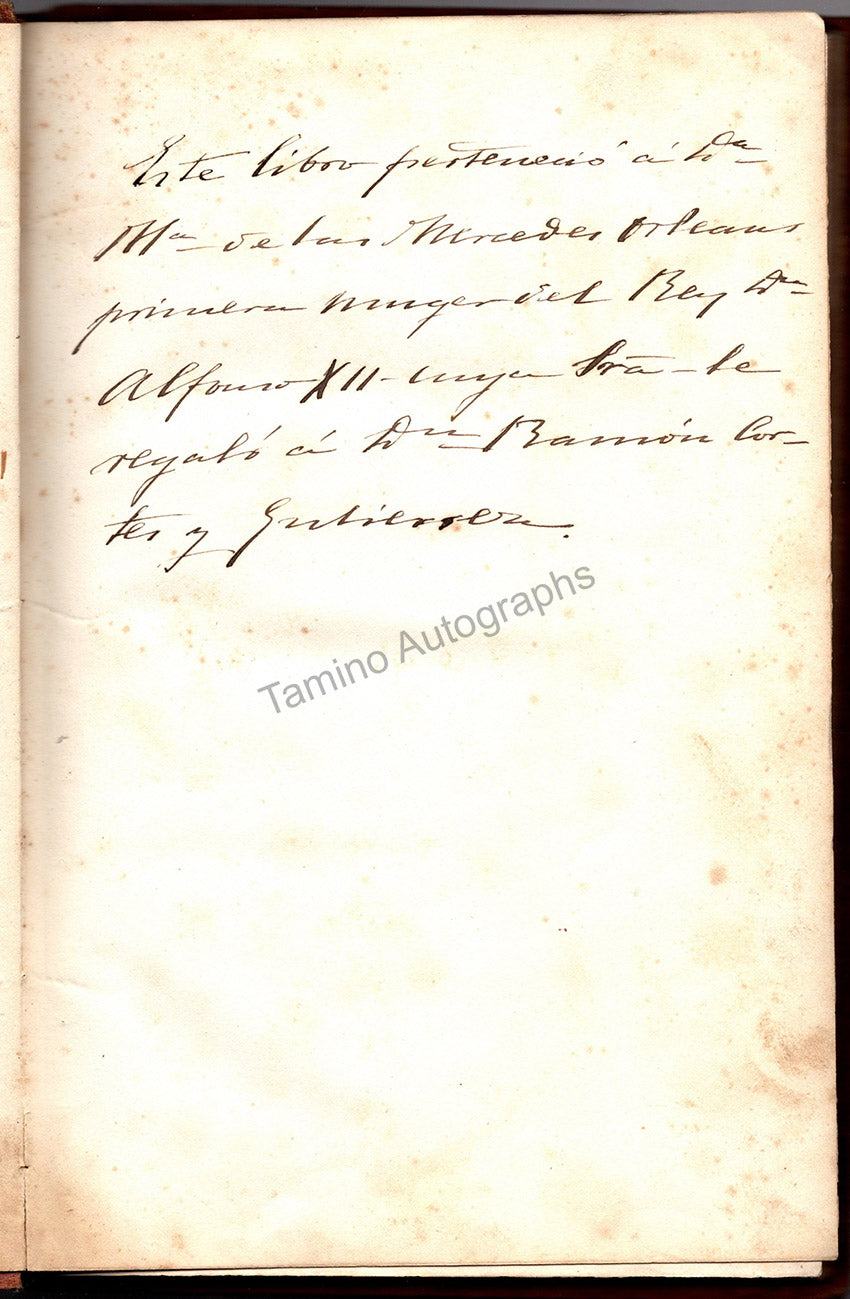 Este libro perteneció á Dª
Mª de las Mercedes Orleans
primera muger del Rey Dn
Alfonso XII - cuya Sra - le
regaló á Dn Ramón Cor-
tes y Gutierrez.
Tamino Autographs